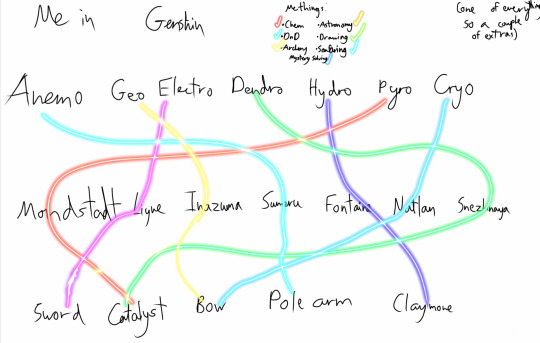 Me in Genshin
Me things:
• Chem • Astronomy
• DnD • Drawing
• Archery
Mystery Solving
(one of everything
so a couple
of extras)
Anemo Geo Electro Dendro Hydro Pyro Cryo
Mondstadt Liyue Inazuma Sumeru Fontaine Natlan Snezhnaya
Sword Catalyst Bow Pole arm Claymore